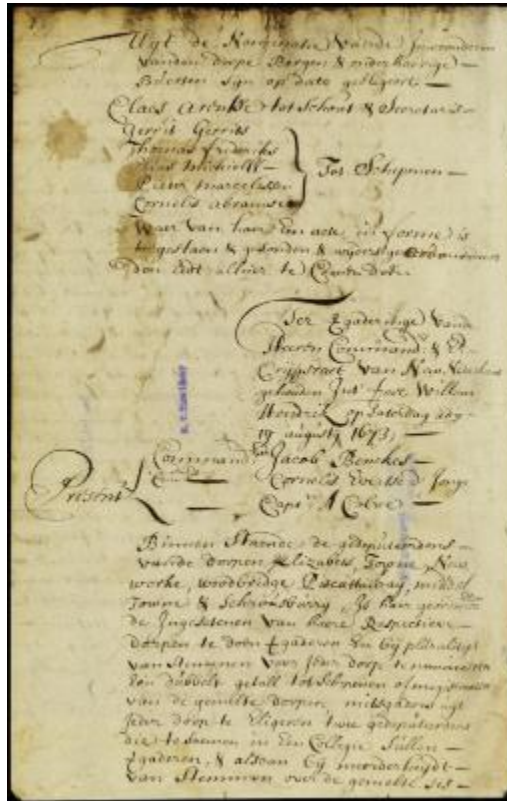 Uyt de Nominatie vande Inwoonderen
vanden dorpe Bergen & onderhoorige
Buerten syn op date geeligeert
Claes Arentse tot Schout & Secretaris
Gerrit Gerrits
Thomas Frederiks
Elias Michielss
Pieter Marcelissen
Cornelis Abramse
Tot Schepenen
Waer van haer Een acte in forme is
toegesonden & wyders
den Eedt alhier te Comen doen
Ter vergaderinge vande
Heeren Command.rs &
Crijghsraet van New Nederlant
gehouden Int fort Willem
Hendrik op Saterdag den
19 august, 1673,
Present
Command.rs Jacob Benckes
Cornelis Evertse d' Jonge
Capt.n A Colve
Binnen Staende de gedeputeerdens
vande dorpen Elizabets Towne, New
worke, woodbridge Piscattaway, middel
Towne & Schrousburry, Is haer
de Ingesetenen van haere Respective
dorpen te doen vergaderen En by pluralityt
van Stemmen voor Jder dorp te nomineeren
Een dubbelt getall tot Schepenen
van de gemelte dorpen, mitsgaders uyt
Jeder dorp te Eligeren twe gedeputeerdens
die te saemen in Een Collegie Sullen
vergaderen, & alsdan by meerderheydt
van Stemmen over de gemelte ses